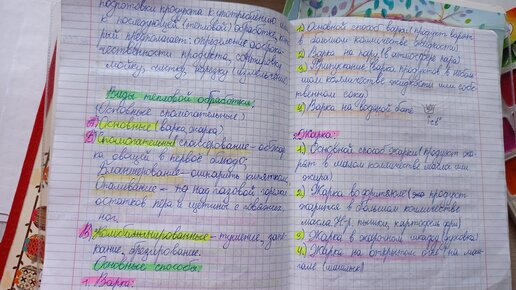 подготовки продукта к употреблению
к последующей (тепловой) обработке, кото
рый предполагает: определение доброка
чественности продукта, сортировку
мойку, чистку, нарезку (измельчение
Виды тепловой обработки.
(Основные вспомогательные)
Основные (варка, жарка)
Вспомогательные (пассерование – обжар
ка овощей в первое блюдо;
Бланширование – ошпарить кипятком;
Опаливание – над газовой горелкой
остатков пера и щетины с говяжьих
ног.
Комбинированные – тушение, запе
кание, брезирование.
Основные способы.
1. Варка:
1) Основной способ варки (продукт варят
в большом количестве жидкости)
2) Варка на пару (в атмосфере пара)
3) Припускание варка продуктов в неболь
шом количестве жидкости или собс
твенном соку)
4) Варка на водяной бане
Жарка:
1) Основной способ жарки (продукт жа
рят в малом количестве масла или
жира)
2) Жарка во фритюре (это продукт
жарится в большом количестве
масла Н-р: пышки, картофель фри)
3) Жарка в жарочном шкафу (духовка)
4) Жарка на открытом огне (на ман
гале (шашлык)